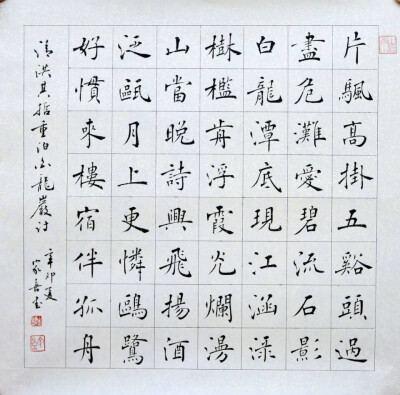 片颿高掛五谿頭過
盡危灘愛碧流石影
白龍潭底現江涵渌
樹檻歬浮霞光爛漫
山當晚詩興飛揚酒
泛甌月上更憐鷗鷺
好慣來樓宿伴孤舟
清洪其哲重泊白龍巖詩
辛卯夏